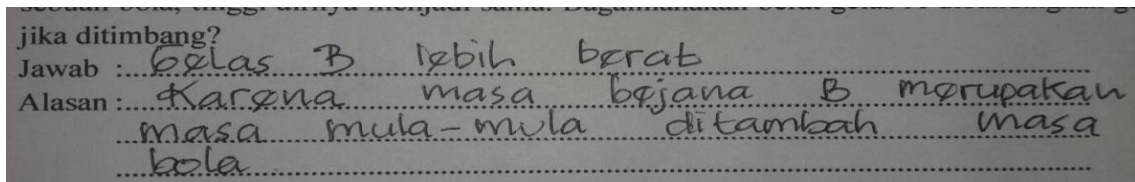 jika ditimbang?
Jawab : Gelas B lebih berat
Alasan : Karena masa bejana B merupakan
masa mula-mula ditambah masa
bola